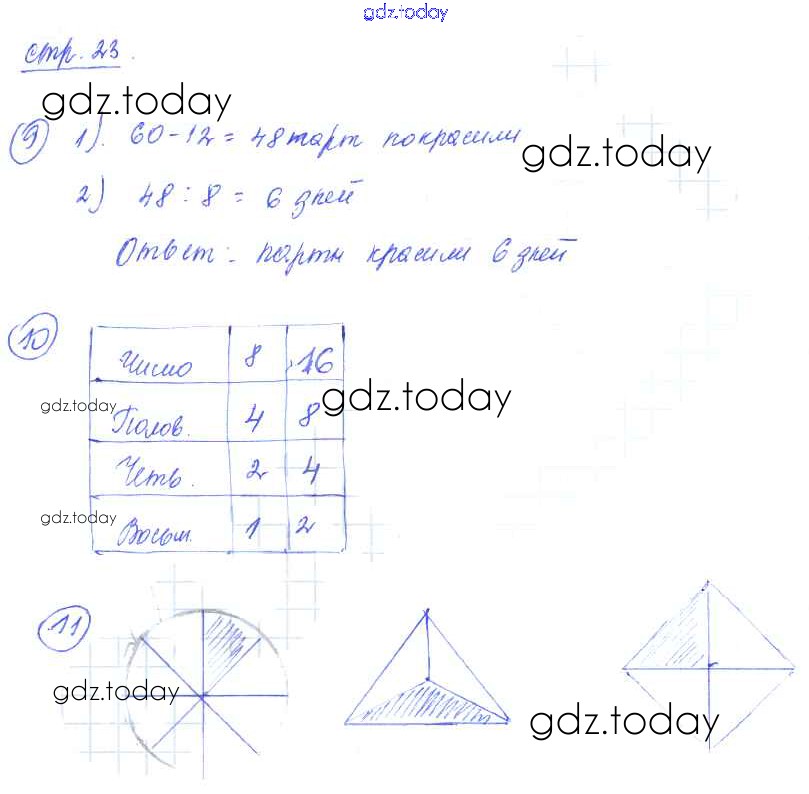 gdz.today
стр. 23.
gdz.today
9 1). 60-12 = 48 парт покрасили
gdz.today
2) 48 : 8 = 6 дней
Ответ: парты красили 6 дней
10
Число 8 16
gdz.today gdz.today
Полов. 4 8
Четв. 2 4
gdz.today
Восьм. 1 2
11
gdz.today
gdz.today